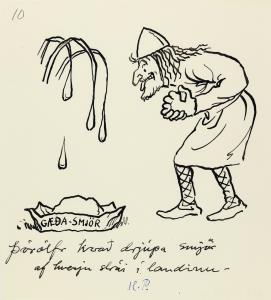 10
GÆÐA-SMJÖR
Þórólfr kvað drjúpa smjör
af hverju strái í landinu -